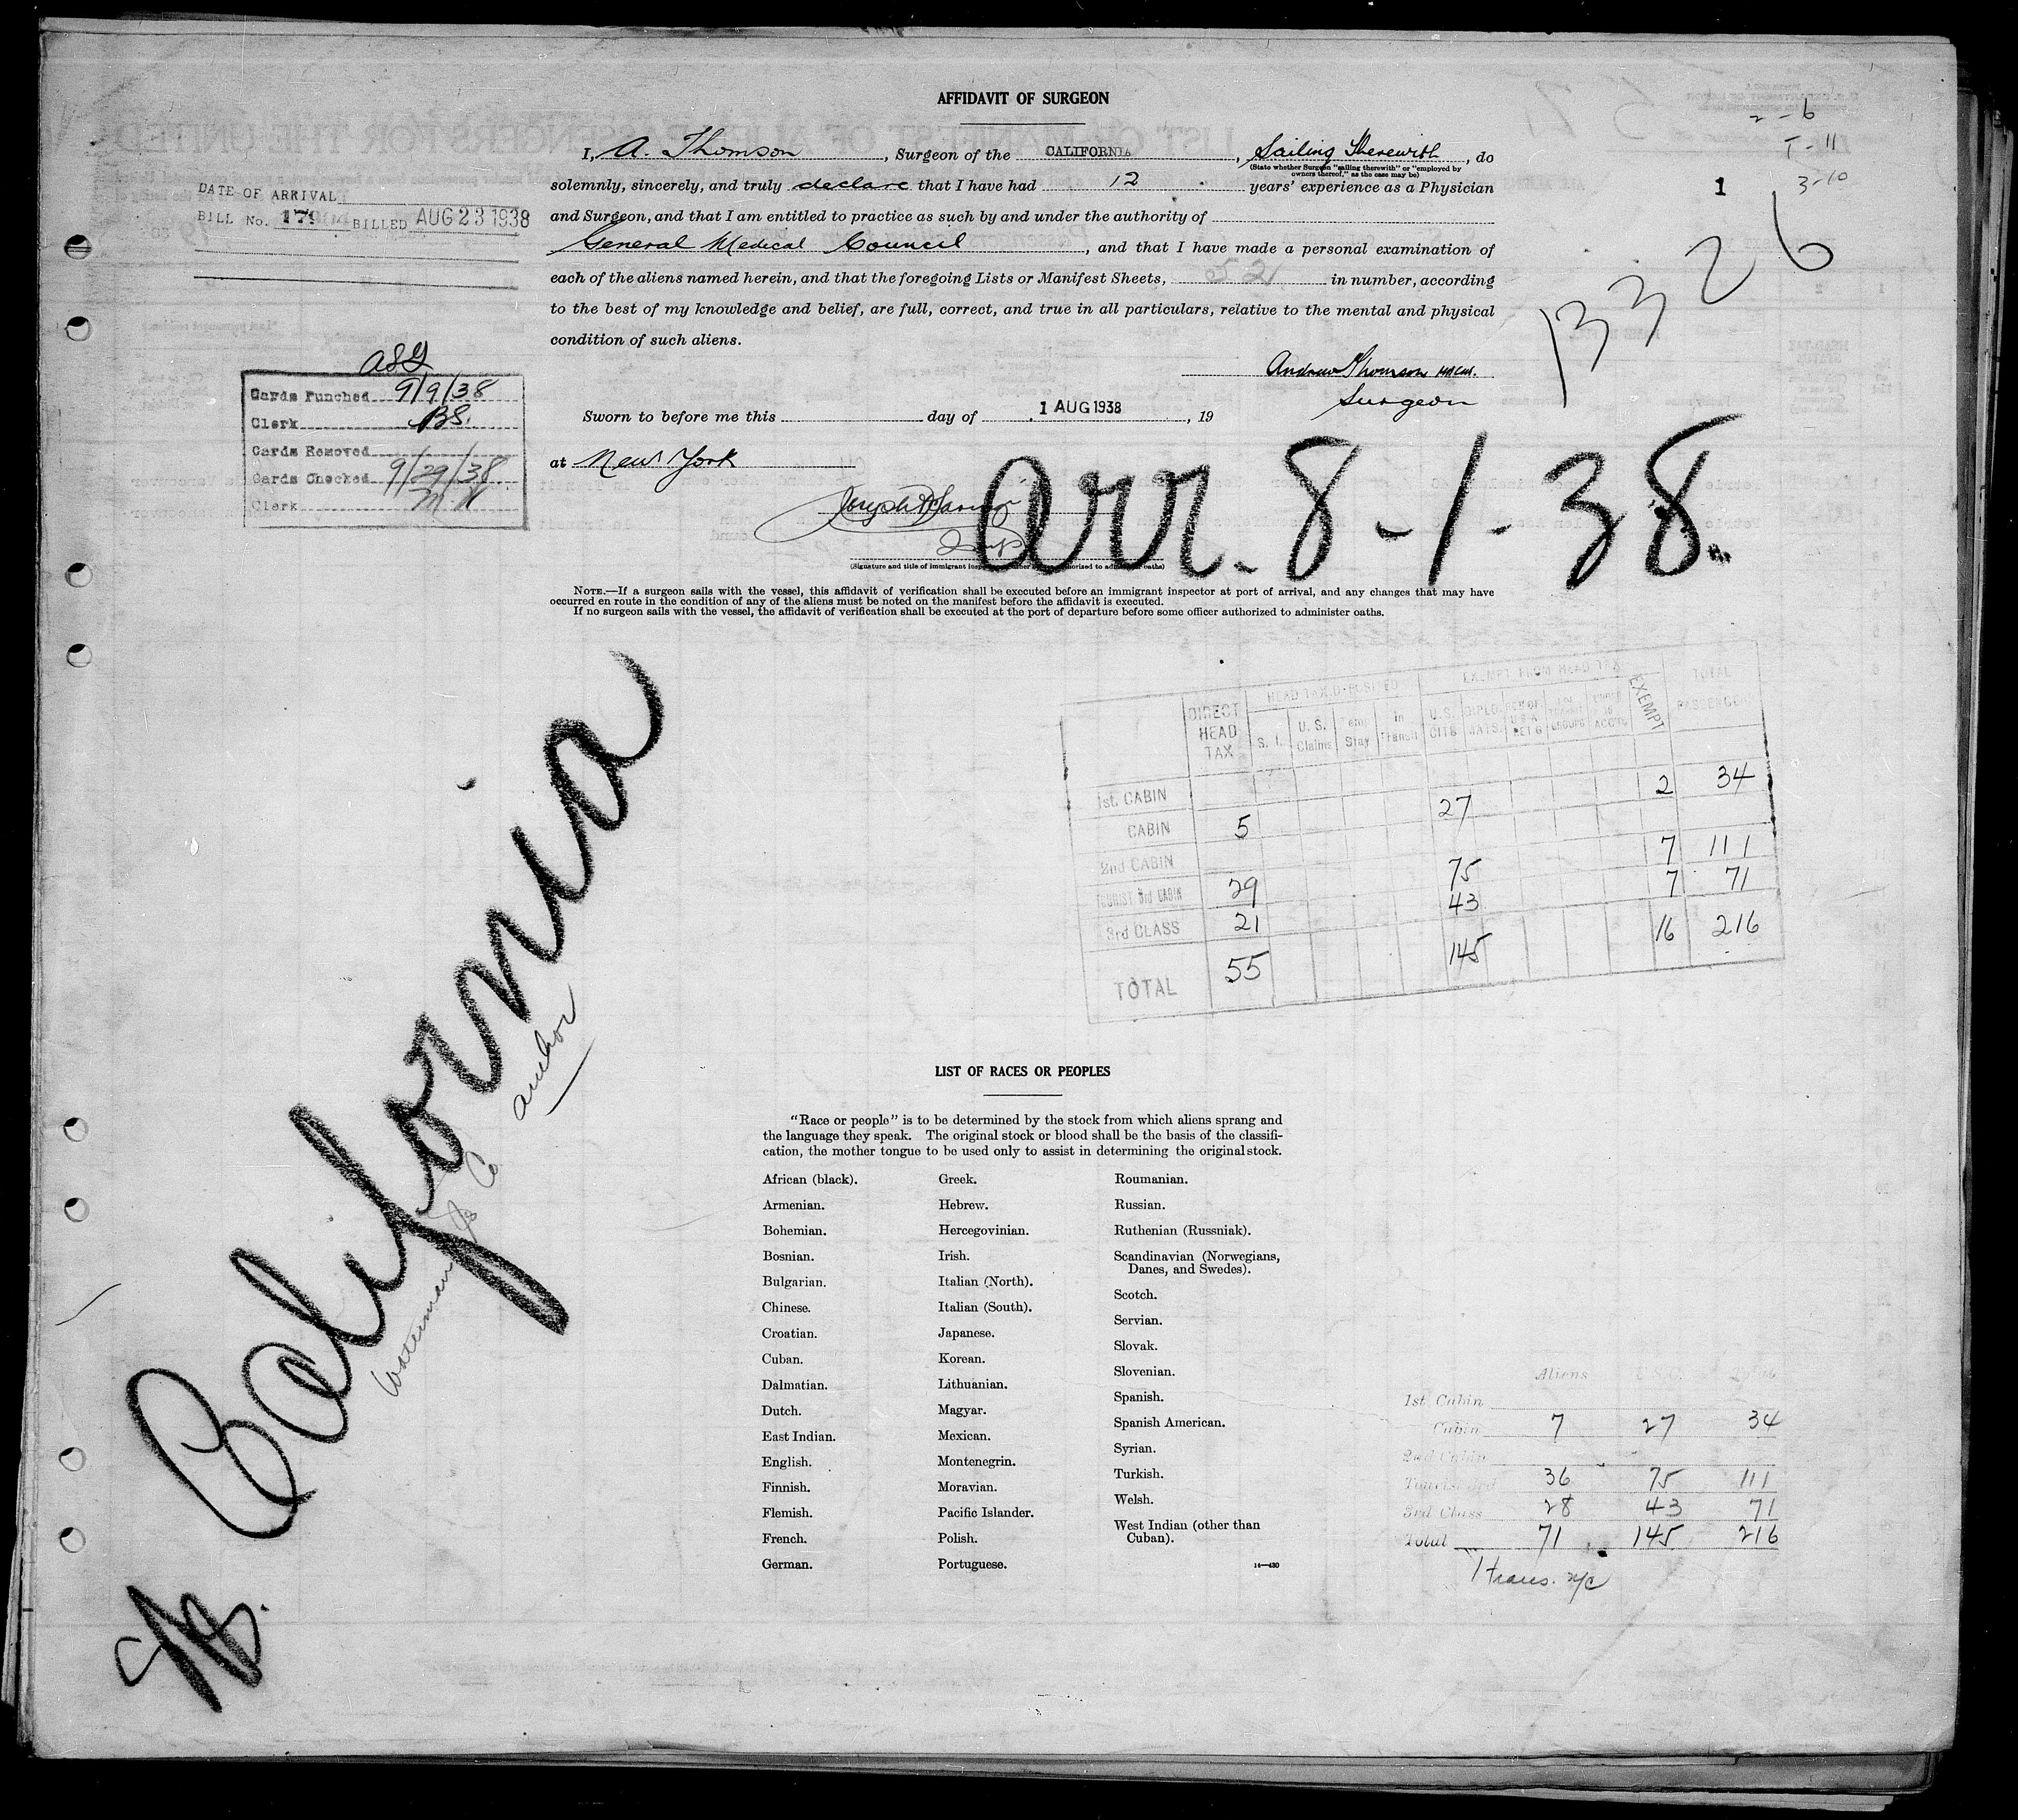 AFFIDAVIT OF SURGEON
I, A. Thomson, Surgeon of the CALIFORNIA, Sailing Therewith, do
(State whether Surgeon "sailing therewith" or "employed by
owners thereof," as the case may be)
solemnly, sincerely, and truly declare that I have had 12 years' experience as a Physician
and Surgeon, and that I am entitled to practice as such by and under the authority of
General Medical Council, and that I have made a personal examination of
each of the aliens named herein, and that the foregoing Lists or Manifest Sheets, in number, according
to the best of my knowledge and belief, are full, correct, and true in all particulars, relative to the mental and physical
condition of such aliens.
Andrew Thomson
Surgeon
Sworn to before me this day of 1 AUG 1938, 19
at New York
2 - 6
T - 11
3 - 10
1
13326
DATE OF ARRIVAL
BILL No. 179 BILLED AUG 23 1938
Cards Punched 9/9/38
Clerk BS.
Cards Removed
Cards Checked 9/29/38
Clerk
arr. 8-1-38.
NOTE.—If a surgeon sails with the vessel, this affidavit of verification shall be executed before an immigrant inspector at port of arrival, and any changes that may have
occurred en route in the condition of any of the aliens must be noted on the manifest before the affidavit is executed.
If no surgeon sails with the vessel, the affidavit of verification shall be executed at the port of departure before some officer authorized to administer oaths.
California
anchor
Waterman
Co
HEAD TAX DEPOSITED EXEMPT FROM HEAD TAX
DIRECT HEAD TAX S. I. U. S. Claims Temp Stay In Transit U.S. CITS DIPLO. MATS. EXEMPT TOTAL PASSENGERS
1st. CABIN
CABIN 5 27 2 34
2nd CABIN
TOURIST 3rd CABIN 29 75 7 111
3rd CLASS 21 43 7 71
TOTAL 55 145 16 216
LIST OF RACES OR PEOPLES
"Race or people" is to be determined by the stock from which aliens sprang and
the language they speak. The original stock or blood shall be the basis of the classifi-
cation, the mother tongue to be used only to assist in determining the original stock.
African (black).
Armenian.
Bohemian.
Bosnian.
Bulgarian.
Chinese.
Croatian.
Cuban.
Dalmatian.
Dutch.
East Indian.
English.
Finnish.
Flemish.
French.
German.
Greek.
Hebrew.
Hercegovinian.
Irish.
Italian (North).
Italian (South).
Japanese.
Korean.
Lithuanian.
Magyar.
Mexican.
Montenegrin.
Moravian.
Pacific Islander.
Polish.
Portuguese.
Roumanian.
Russian.
Ruthenian (Russniak).
Scandinavian (Norwegians,
Danes, and Swedes).
Scotch.
Servian.
Slovak.
Slovenian.
Spanish.
Spanish American.
Syrian.
Turkish.
Welsh.
West Indian (other than
Cuban).
14—430
Aliens Total
1st. Cabin
Cabin 7 27 34
2nd Cabin
Tourist 3rd 36 75 111
3rd Class 28 43 71
Total 71 145 216
1 trans. n/c